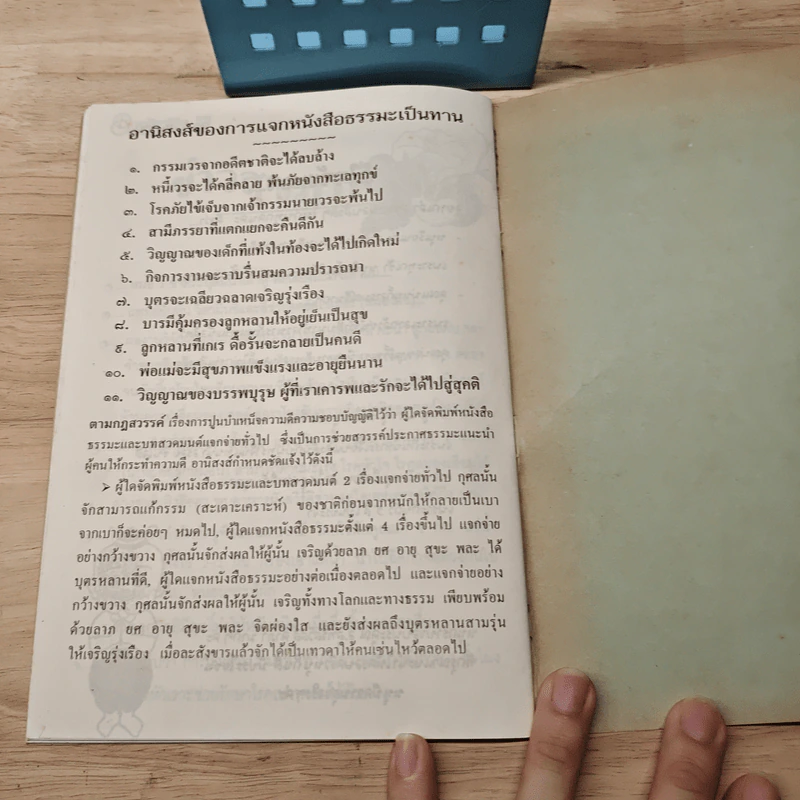 อานิสงส์ของการแจกหนังสือธรรมะเป็นทาน
~~~~~~~~~
๑. กรรมเวรจากอดีตชาติจะได้ลบล้าง
๒. หนี้เวรจะได้คลี่คลาย พ้นภัยจากทะเลทุกข์
๓. โรคภัยไข้เจ็บจากเจ้ากรรมนายเวรจะพ้นไป
๔. สามีภรรยาที่แตกแยกจะคืนดีกัน
๕. วิญญาณของเด็กที่แท้งในท้องจะได้ไปเกิดใหม่
๖. กิจการงานจะราบรื่นสมความปรารถนา
๗. บุตรจะเฉลียวฉลาดเจริญรุ่งเรือง
๘. บารมีคุ้มครองลูกหลานให้อยู่เย็นเป็นสุข
๙. ลูกหลานที่เกเร ดื้อรั้นจะกลายเป็นคนดี
๑๐. พ่อแม่จะมีสุขภาพแข็งแรงและอายุยืนนาน
๑๑. วิญญาณของบรรพบุรุษ ผู้ที่เราเคารพและรักจะได้ไปสู่สุคติ
ตามกฎสวรรค์ เรื่องการปูนบำเหน็จความดีความชอบบัญญัติไว้ว่า ผู้ใดจัดพิมพ์หนังสือ
ธรรมะและบทสวดมนต์แจกจ่ายทั่วไป ซึ่งเป็นการช่วยสวรรค์ประกาศธรรมะแนะนำ
ผู้คนให้กระทำความดี อานิสงส์กำหนดชัดแจ้งไว้ดังนี้
➢ ผู้ใดจัดพิมพ์หนังสือธรรมะและบทสวดมนต์ 2 เรื่องแจกจ่ายทั่วไป กุศลนั้น
จักสามารถแก้กรรม (สะเดาะเคราะห์) ของชาติก่อนจากหนักให้กลายเป็นเบา
จากเบาก็จะค่อยๆ หมดไป, ผู้ใดแจกหนังสือธรรมะตั้งแต่ 4 เรื่องขึ้นไป แจกจ่าย
อย่างกว้างขวาง กุศลนั้นจักส่งผลให้ผู้นั้น เจริญด้วยลาภ ยศ อายุ สุขะ พละ ได้
บุตรหลานที่ดี, ผู้ใดแจกหนังสือธรรมะอย่างต่อเนื่องตลอดไป และแจกจ่ายอย่าง
กว้างขวาง กุศลนั้นจักส่งผลให้ผู้นั้น เจริญทั้งทางโลกและทางธรรม เพียบพร้อม
ด้วยลาภ ยศ อายุ สุขะ พละ จิตผ่องใส และยังส่งผลถึงบุตรหลานสามรุ่น
ให้เจริญรุ่งเรือง เมื่อละสังขารแล้วจักได้เป็นเทวดาให้คนเซ่นไหว้ตลอดไป